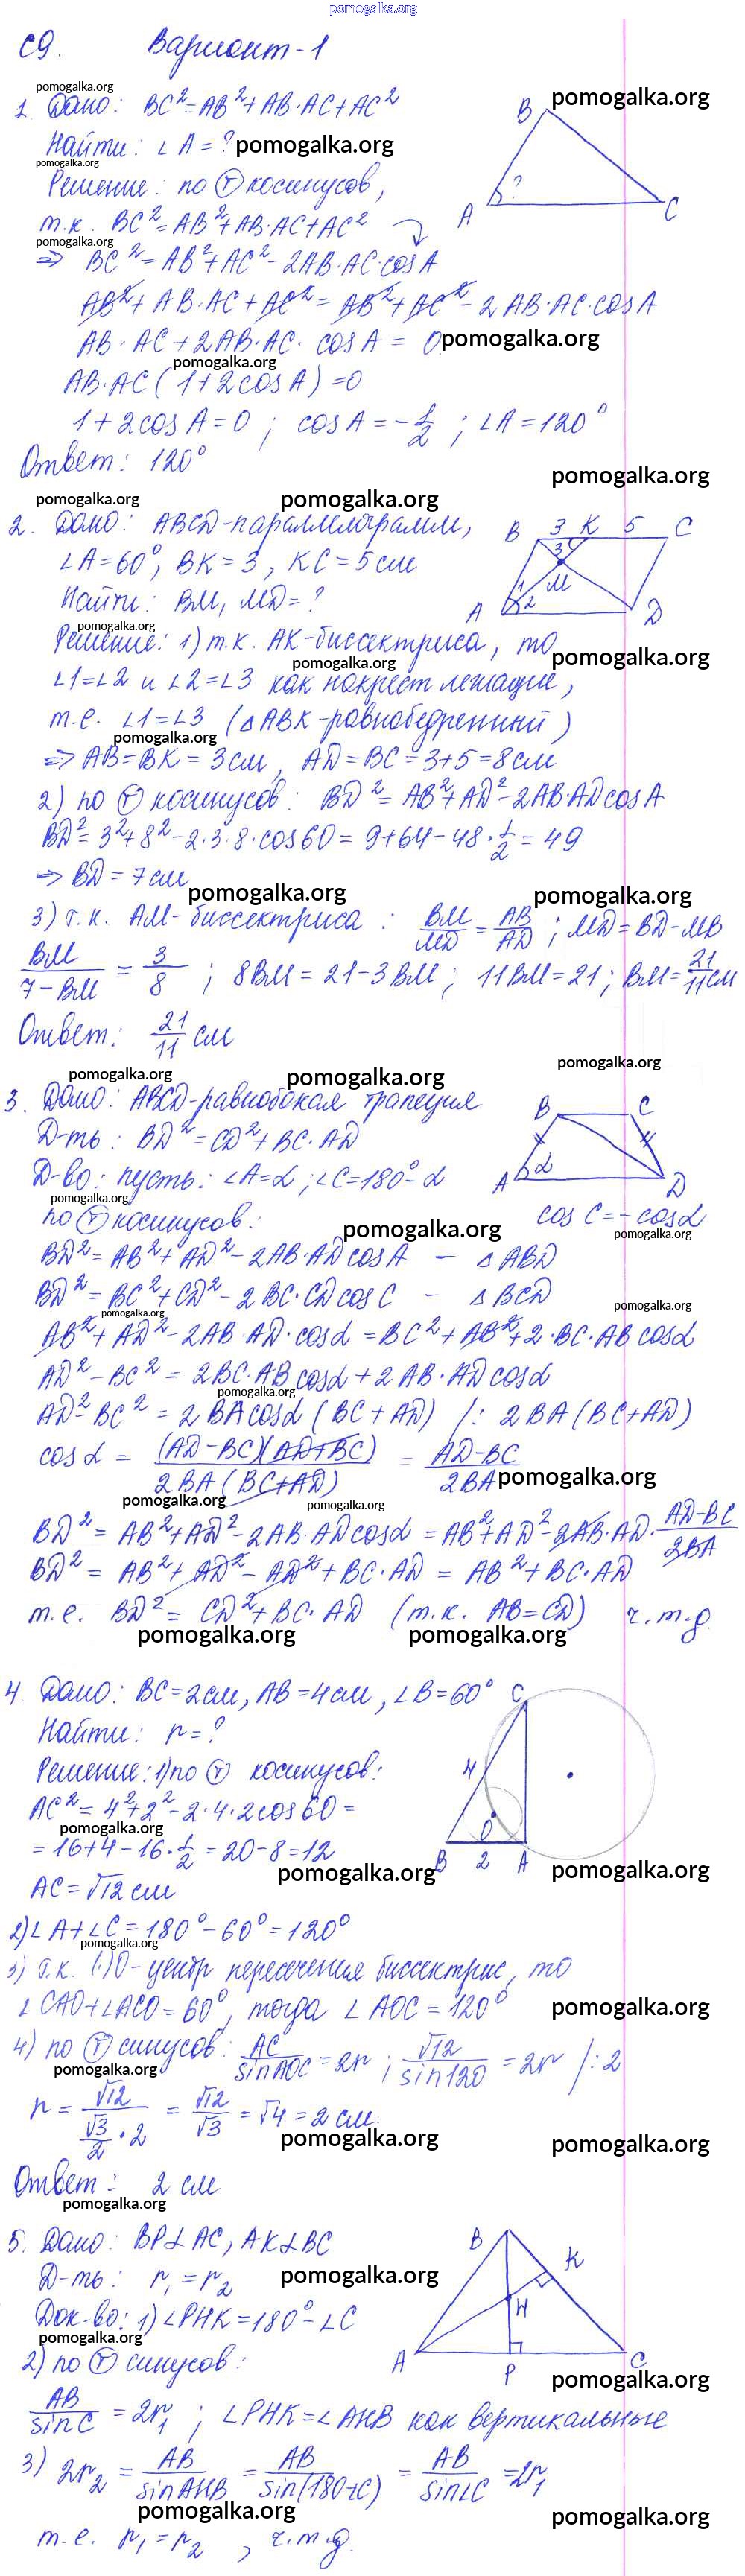 pomogalka.org
С9. Вариант-1
pomogalka.org
1. Дано: BC²=AB²+AB·AC+AC² pomogalka.org
Найти: ∠A=? pomogalka.org
pomogalka.org
B
A
?
C
Решение: по Ⓣ косинусов,
т.к. BC²=AB²+AB·AC+AC²
pomogalka.org
=> BC²=AB²+AC²-2AB·AC·cosA
AB²+AB·AC+AC²=AB²+AC²-2AB·AC·cosA
AB·AC+2AB·AC·cosA=0 pomogalka.org
pomogalka.org
AB·AC(1+2cosA)=0
1+2cosA=0; cosA=-1/2; ∠A=120°
Ответ: 120°
pomogalka.org
pomogalka.org pomogalka.org
2. Дано: ABCD-параллелограмм,
∠A=60°, BK=3, KC=5см
Найти: BM, MD=?
B 3 K 5 C
3
M
1
A 2 D
pomogalka.org
Решение: 1) т.к. AK-биссектриса, то
pomogalka.org pomogalka.org
∠1=∠2 и ∠2=∠3 как накрест лежащие,
т.е. ∠1=∠3 (△ABK-равнобедренный)
pomogalka.org
=> AB=BK=3см, AD=BC=3+5=8см
2) по Ⓣ косинусов: BD²=AB²+AD²-2AB·ADcosA
BD²=3²+8²-2·3·8·cos60=9+64-48·1/2=49
=> BD=7см
pomogalka.org pomogalka.org
3) т.к. AM-биссектриса: BM/MD=AB/AD; MD=BD-MB
BM/7-BM=3/8; 8BM=21-3BM; 11BM=21; BM=21/11см
Ответ: 21/11 см
pomogalka.org pomogalka.org pomogalka.org
3. Дано: ABCD-равнобокая трапеция
Д-ть: BD²=CD²+BC·AD
Д-во: пусть: ∠A=α; ∠C=180°-α
B C
A α D
pomogalka.org
по Ⓣ косинусов: cosC=-cosα
pomogalka.org pomogalka.org
BD²=AB²+AD²-2AB·ADcosA - △ABD
BD²=BC²+CD²-2BC·CDcosC - △BCD
pomogalka.org pomogalka.org
AB²+AD²-2AB·AD·cosα=BC²+AB²+2·BC·ABcosα
AD²-BC²=2BC·ABcosα+2AB·ADcosα
pomogalka.org
AD²-BC²=2BAcosα(BC+AD) /:2BA(BC+AD)
cosα=(AD-BC)(AD+BC)/2BA(BC+AD)=AD-BC/2BA pomogalka.org
pomogalka.org pomogalka.org
BD²=AB²+AD²-2AB·ADcosα=AB²+AD²-2AB·AD·AD-BC/2BA
BD²=AB²+AD²-AD²+BC·AD=AB²+BC·AD
т.е. BD²=CD²+BC·AD (т.к. AB=CD) ч.т.д.
pomogalka.org pomogalka.org
4. Дано: BC=2см, AB=4см, ∠B=60°
Найти: r=?
Решение: 1) по Ⓣ косинусов:
AC²=4²+2²-2·4·2cos60=
pomogalka.org
=16+4-16·1/2=20-8=12
AC=√12 см
C
4
O
B 2 A
pomogalka.org pomogalka.org
2) ∠A+∠C=180°-60°=120°
pomogalka.org
3) т.к. (·)O-центр пересечения биссектрис, то
∠CAO+∠ACO=60°, тогда ∠AOC=120° pomogalka.org
4) по Ⓣ синусов: AC/sinAOC=2r; √12/sin120=2r /:2
pomogalka.org
r=√12/√3/2·2=√12/√3=√4=2см.
pomogalka.org pomogalka.org
Ответ: 2 см
pomogalka.org
5. Дано: BP⊥AC, AK⊥BC
Д-ть: r₁=r₂ pomogalka.org
Док-во: 1) ∠PHK=180°-∠C
pomogalka.org
B
K
H
A P C
pomogalka.org
2) по Ⓣ синусов:
AB/sinC=2r₁; ∠PHK=∠AHB как вертикальные
3) 2r₂=AB/sinAHB=AB/sin(180-∠C)=AB/sin∠C=2r₁
pomogalka.org pomogalka.org
т.е. r₁=r₂, ч.т.д.